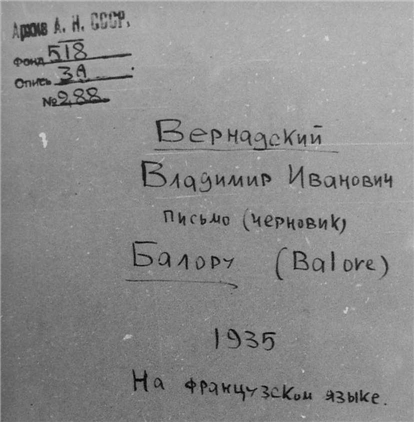 Архив А. Н. СССР.
Фонд 518
Опись 3А
№ 288
Вернадский
Владимир Иванович
письмо (черновик)
Балору (Balore)
1935
На французском языке.